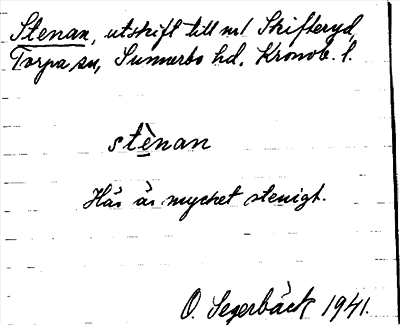 Stenan, utskift till nr 1 Skifteryd,
Torpa sn, Sunnerbo hd. Kronob. l.
stènan
Här är mycket stenigt.
O. Segerbäck 1941.